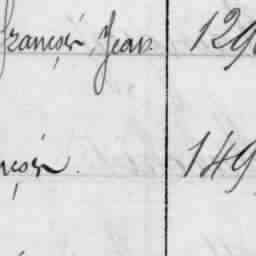 françois, Jean. 129
nçois. 149